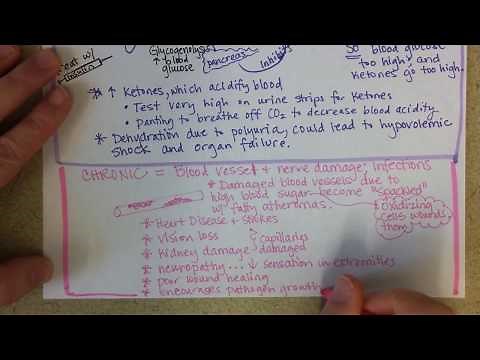 treat w/
insulin
Glycogenolysis
↑ blood
glucose
pancreas
inhibits
So blood glucose
too high and
ketones go too high.
* ↑ Ketones, which acidify blood
• Test very high on urine strips for ketones
• Panting to breathe off CO₂ to decrease blood acidity
* Dehydration due to polyuria could lead to hypovolemic
shock and organ failure.
CHRONIC = Blood vessel & nerve damage; infections
* Damaged blood vessels due to
high blood sugar become "spackled"
w/ fatty atheromas.
oxidizing
cells wounds
them
* Heart Disease & strokes
* vision loss
* Kidney damage
capillaries
damaged
* neuropathy ... ↓ sensation in extremities
* poor wound healing
* Encourages pathogen growth